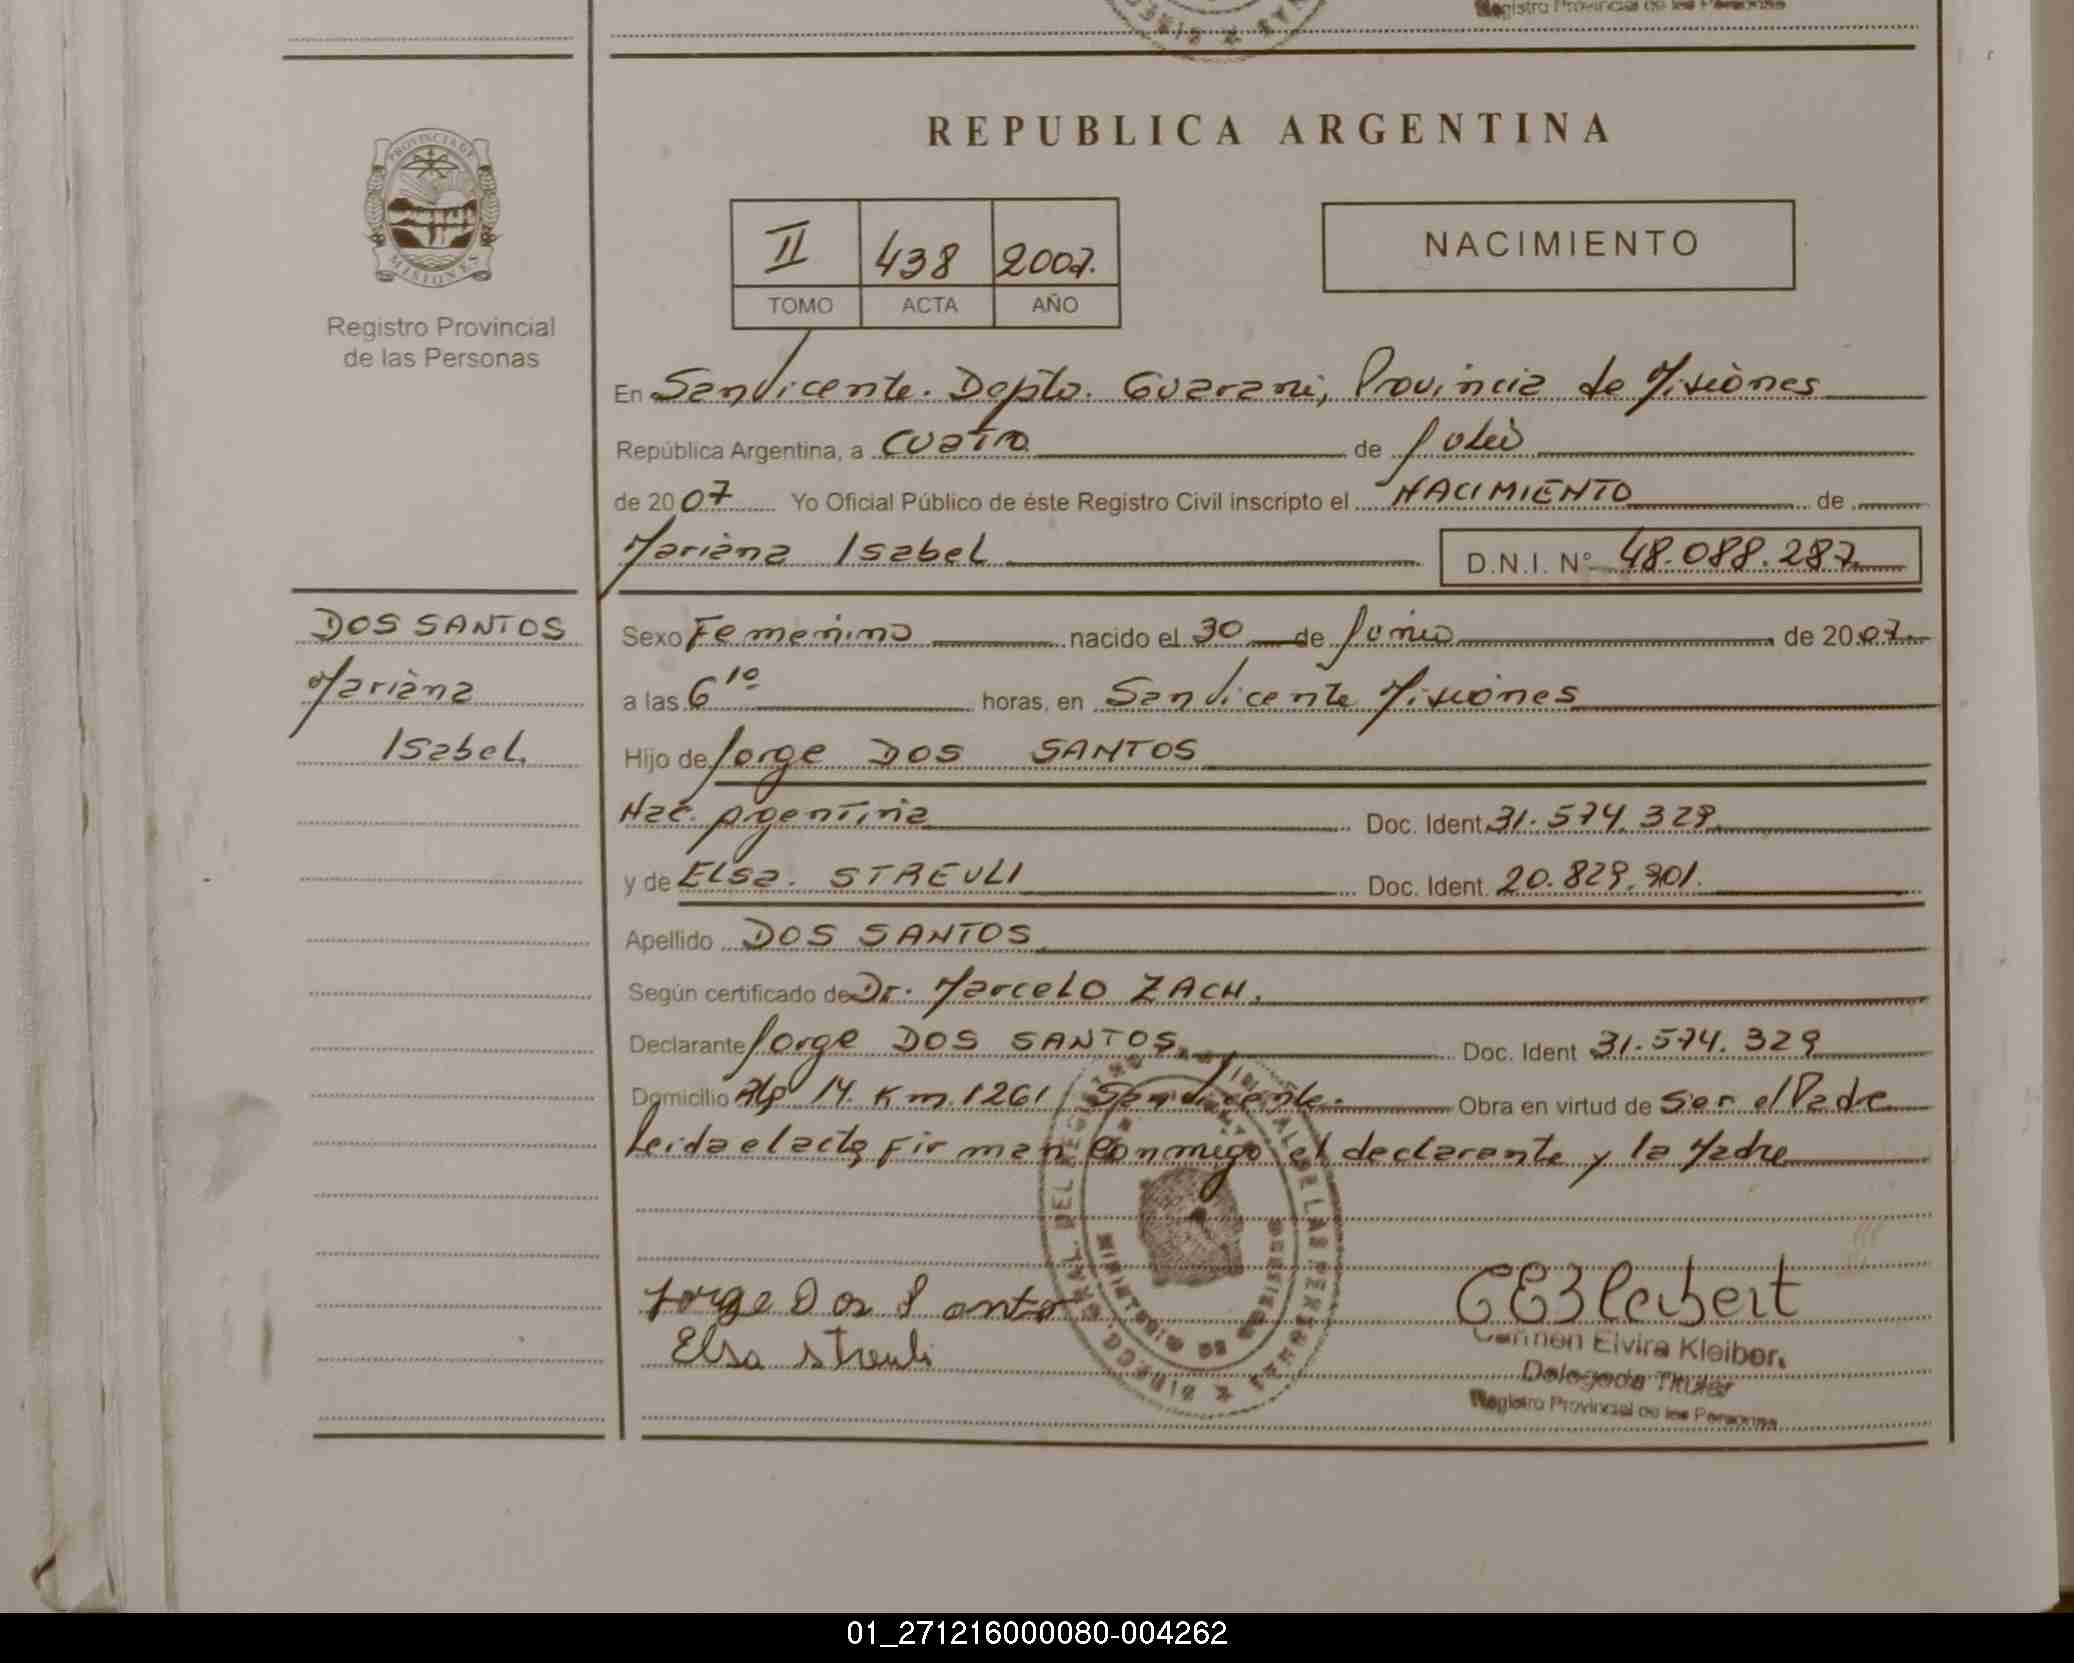 Registro Provincial de las Personas
PROVINCIA DE
MISIONES
Registro Provincial
de las Personas
REPUBLICA ARGENTINA
II 438 2007.
TOMO ACTA AÑO
NACIMIENTO
En San Vicente. Depto. Guarani, Provincia de Misiones
República Argentina, a cuatro de Julio
de 2007 Yo Oficial Público de éste Registro Civil inscripto el NACIMIENTO de
Mariana Isabel D.N.I. Nº 48.088.287
DOS SANTOS
Mariana
Isabel
Sexo Femenino nacido el 30 de Junio de 2007
a las 6 10 horas, en San Vicente Misiones
Hijo de Jorge DOS SANTOS
Nac. Agentina Doc. Ident. 31.574.329
y de Elsa. STREULI Doc. Ident. 20.829.901.
Apellido DOS SANTOS
Según certificado de Dr. Marcelo ZACH.
Declarante Jorge DOS SANTOS Doc. Ident 31.574.329
Domicilio 14. Km 1261 San Vicente. Obra en virtud de Ser el Padre
Leida el acta, Firman Conmigo el declarante y la Madre
Jorge Dos Santo
Elsa Streuli
Carmen Elvira Kleiber.
Delegada Titular
Registro Provincial de las Personas
01_271216000080-004262